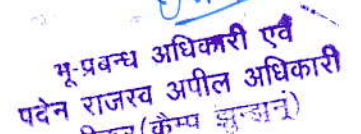 भू-प्रबन्ध अधिकारी एवं
पदेन राजस्व अपील अधिकारी
(कैम्प झुन्झुनूं)